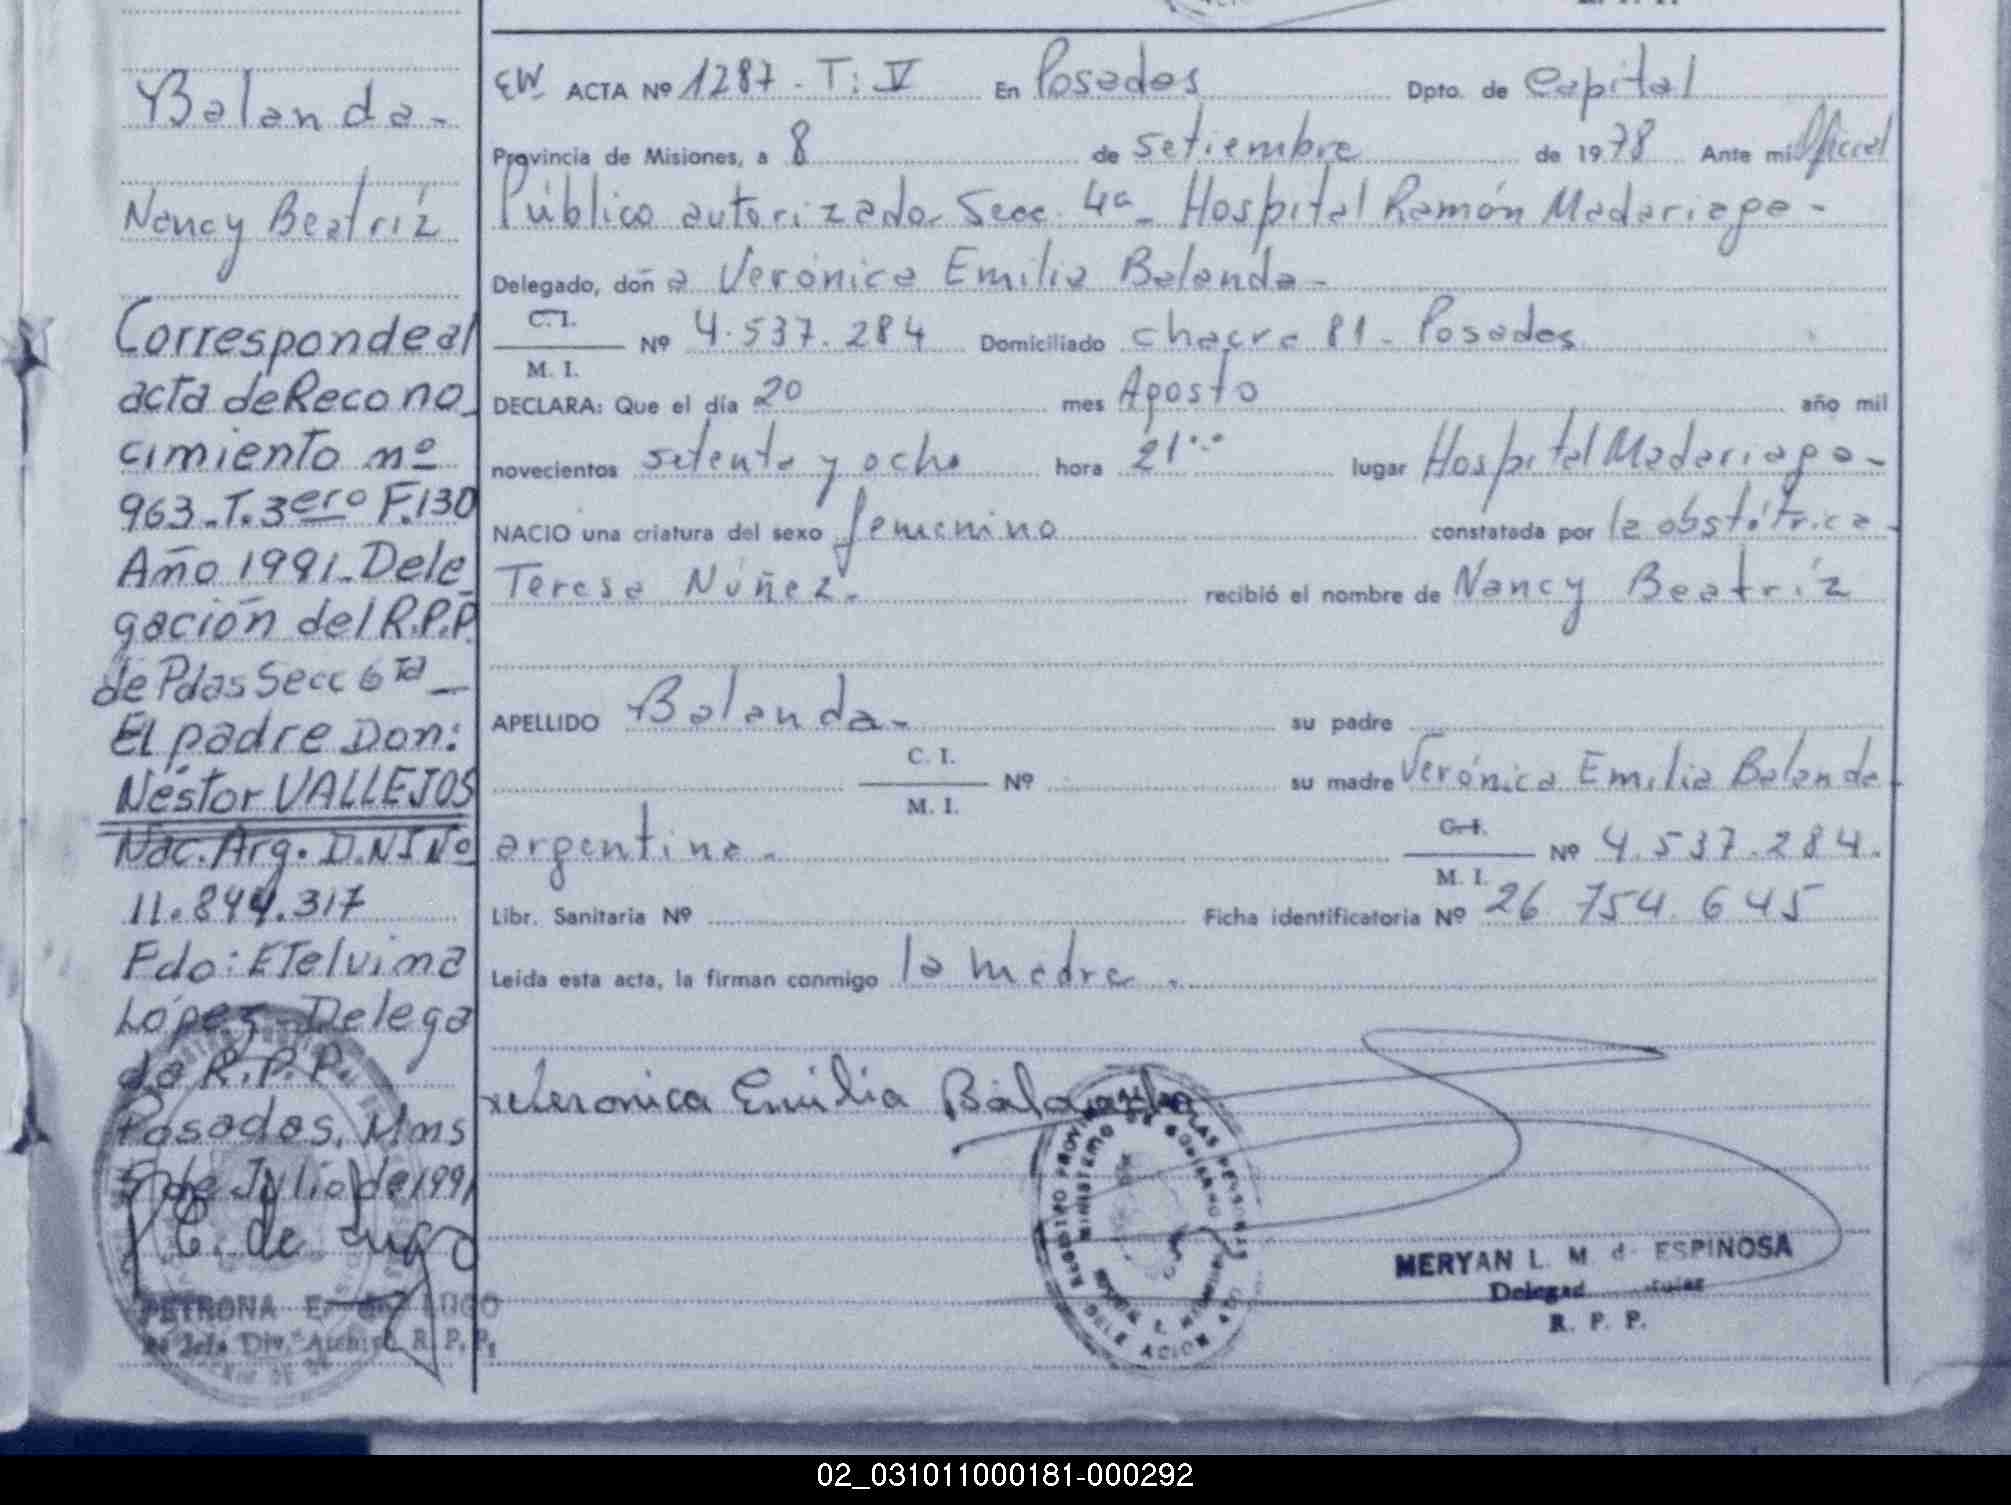 Balanda-
Nancy Beatríz
Corresponde al
acta de Recono_
cimiento nº
963-T.3ero F.130
Año 1991-Dele
gación del R.P.P.
de Pdas Secc 6ta_
El padre Don:
Néstor VALLEJOS
Nac. Arg. D.N.I Nº
11.844.317
Fdo: ETelvina
López-Delega
da R.P.P.
Posadas, Mns
5 de Julio de 1991
E. de Lugo
PETRONA E. DE LUGO
Jefe Div. Archivo R. P. P.
EW. ACTA Nº 1287. T: V En Posadas Dpto. de Capital
Provincia de Misiones, a 8 de setiembre de 1978 Ante mi Oficial
Público autorizado Secc. 4a- Hospital Ramón Madariaga-
Delegado, doña Verónica Emilia Balanda-
C. I.
M. I. Nº 4.537.284 Domiciliado chacra 81- Posadas
DECLARA: Que el día 20 mes Agosto año mil
novecientos setenta y ocho hora 21.. lugar Hospital Madariaga-
NACIO una criatura del sexo femenino constatada por la obstétrica-
Teresa Núñez. recibió el nombre de Nancy Beatríz
APELLIDO Balanda- su padre
C. I.
M. I. Nº su madre Verónica Emilia Balanda-
argentina. C. I.
M. I. Nº 4.537.284.
Libr. Sanitaria Nº Ficha identificatoria Nº 26 754 645
Leída esta acta, la firman conmigo la madre.
Veronica Emilia Balanda
MERYAN L. M d ESPINOSA
Delegad
R. P. P.
02_031011000181-000292